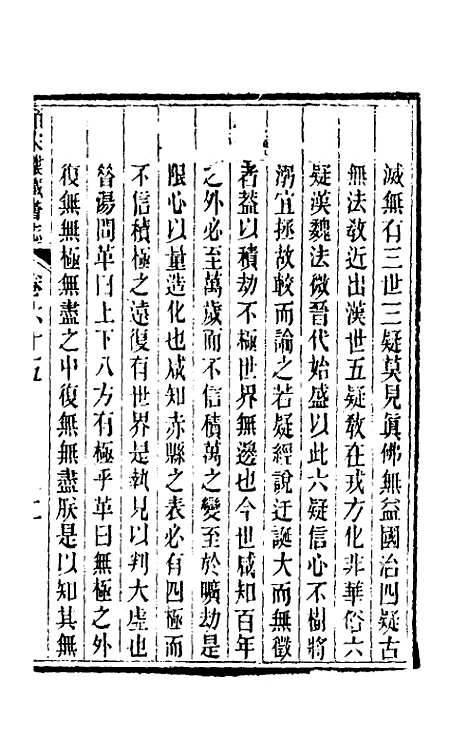 滅無有三世三疑莫見眞佛無益國治四疑古
無法敎近出漢世五疑敎在戎方化非華俗六
疑漢魏法微晉代始盛以此六疑信心不樹將
溺宜拯故較而論之若疑經說迂誕大而無徵
者葢以積劫不極世界無邊也今世咸知百年
之外必至萬歲而不信積萬之變至於曠劫是
限心以量造化也咸知赤縣之表必有四極而
不信積極之遠復有世界是執見以判大虛也
昝湯問革曰上下八方有極乎革曰無極之外
復無無極無盡之中復無無盡朕是以知其無
皕宋樓藏書志
卷六十五